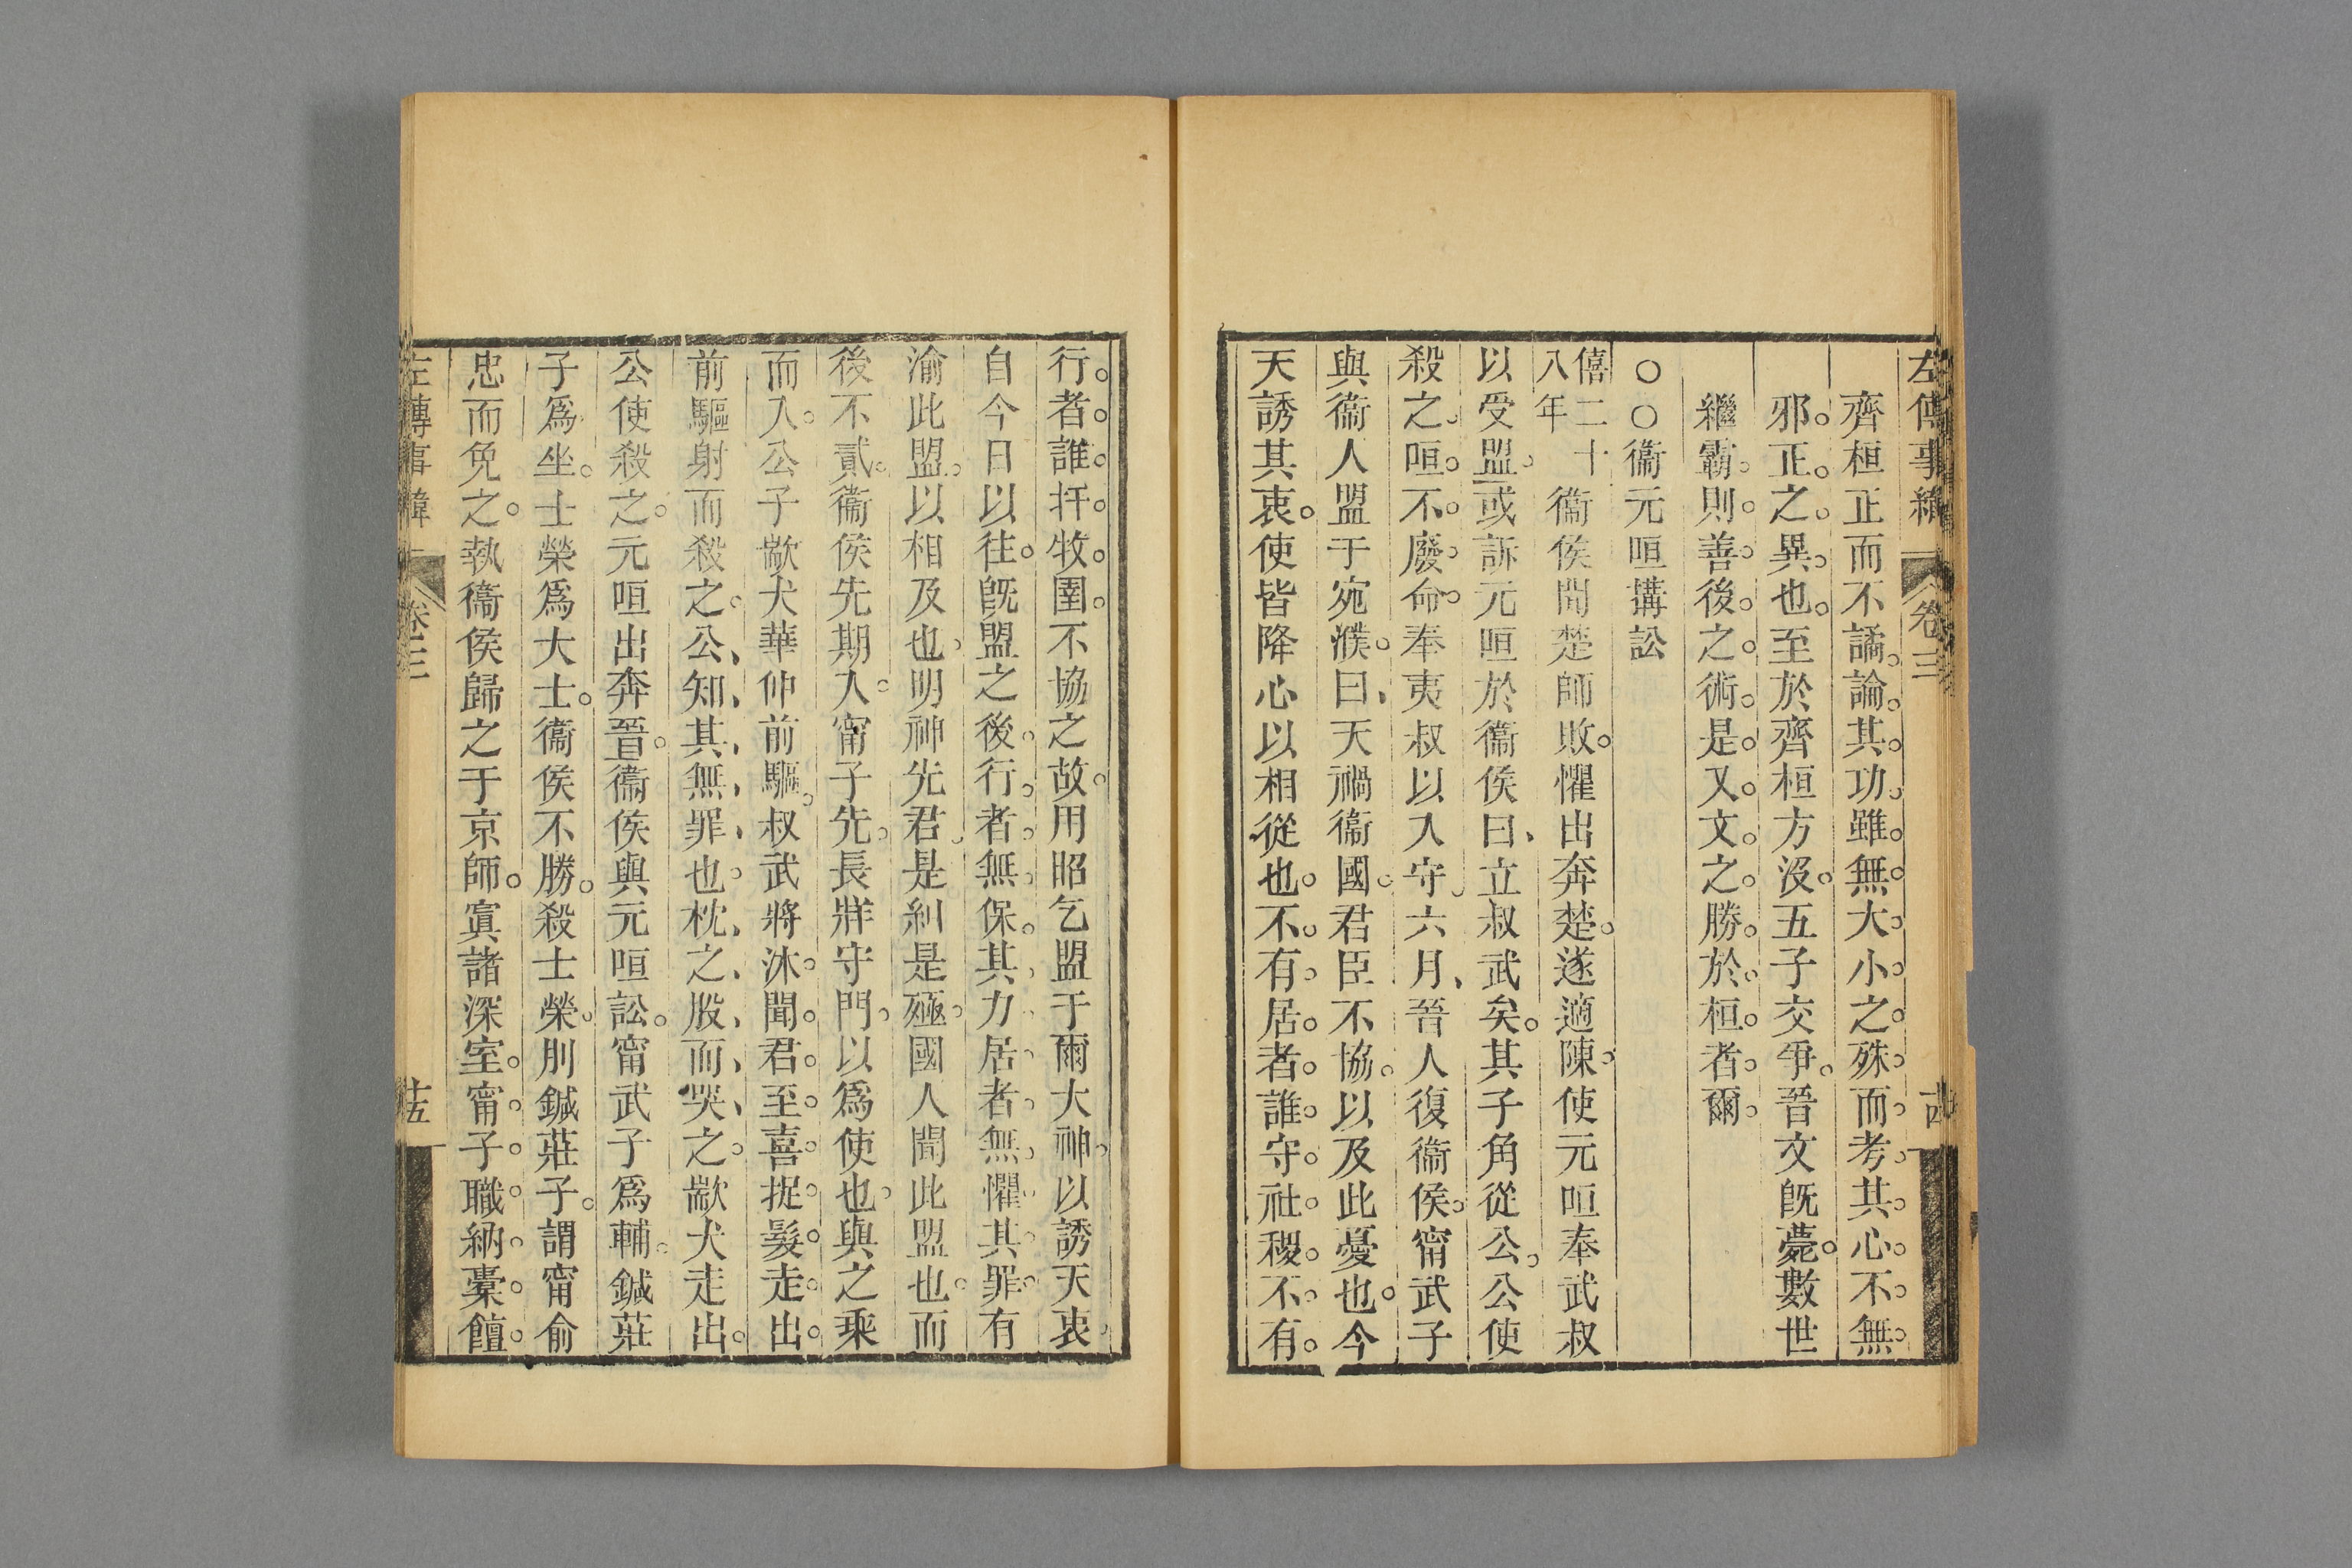 左傳事緯 卷三 十四
齊桓正而不譎論其功雖無大小之殊而考其心不無
邪正之異也至於齊桓方沒五子交爭晉文旣薨數世
繼霸則善後之術是又文之勝於桓者爾
○○衞元咺搆訟
僖二十八年衞侯聞楚師敗懼出奔楚遂適陳使元咺奉武叔
以受盟或訴元咺於衞侯曰立叔武矣其子角從公公使
殺之咺不廢命奉夷叔以入守六月晉人復衞侯甯武子
與衞人盟于宛濮曰天禍衞國君臣不協以及此憂也今
天誘其衷使皆降心以相從也不有居者誰守社稷不有
行者誰扞牧圉不協之故用昭乞盟于爾大神以誘天衷
自今日以往旣盟之後行者無保其力居者無懼其罪有
渝此盟以相及也明神先君是糾是殛國人聞此盟也而
後不貳衞侯先期入甯子先長牂守門以爲使也與之乘
而入公子歂犬華仲前驅叔武將沐聞君至喜捉髮走出
前驅射而殺之公知其無罪也枕之股而哭之歂犬走出
公使殺之元咺出奔晉衞侯與元咺訟甯武子爲輔鍼莊
子爲坐士榮爲大士衞侯不勝殺士榮刖鍼莊子謂甯俞
忠而免之執衞侯歸之于京師寘諸深室甯子職納橐饘
左傳事緯 卷三 十五